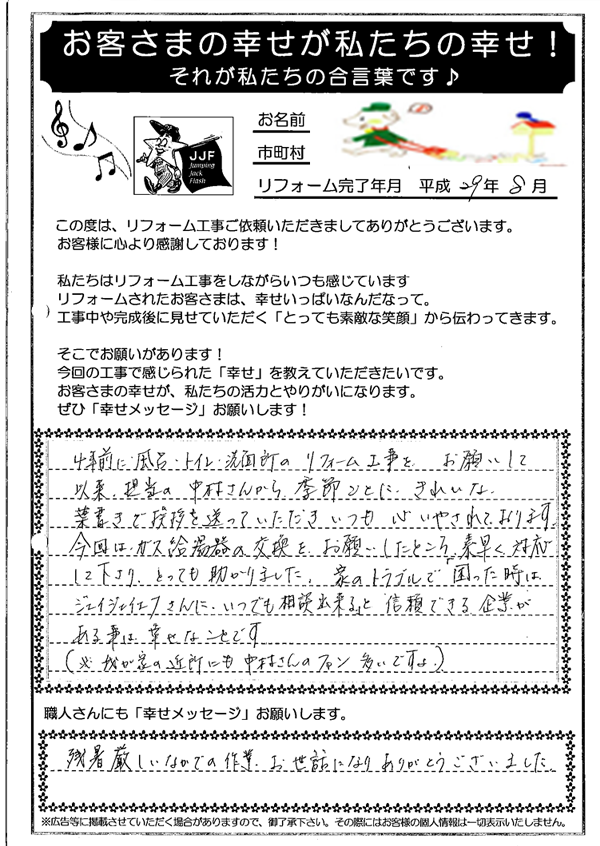 お客さまの幸せが私たちの幸せ！
それが私たちの合言葉です♪
JJF
Jumping
Jack
Flash
お名前
市町村
リフォーム完了年月　平成29年8月
この度は、リフォーム工事ご依頼いただきましてありがとうございます。
お客様に心より感謝しております！
私たちはリフォーム工事をしながらいつも感じています
リフォームされたお客さまは、幸せいっぱいなんだなって。
工事中や完成後に見せていただく「とっても素敵な笑顔」から伝わってきます。
そこでお願いがあります！
今回の工事で感じられた「幸せ」を教えていただきたいです。
お客さまの幸せが、私たちの活力とやりがいになります。
ぜひ「幸せメッセージ」お願いします！
4年前に・風呂・トイレ・洗面所のリフォーム工事を　お願いして
以来　担当の中村さんから　季節ごとに　きれいな
葉書きで挨拶を送っていただき　いつも　心いやされております。
今回は　ガス給湯器の交換を　お願いしたところ　素早く対応
して下さり　とっても助かりました。家のトラブルで「困った時は
ジェイジェイエフさんに　いつでも相談出来る」と　信頼できる企業が
ある事は　幸せなことです
（※ 我が家の近所にも　中村さんのファン　多いですよ。）
職人さんにも「幸せメッセージ」お願いします。
残暑厳しいなかでの作業　お世話になり　ありがとうございました。
※広告等に掲載させていただく場合がありますので、御了承下さい。その際にはお客様の個人情報は一切表示いたしません。